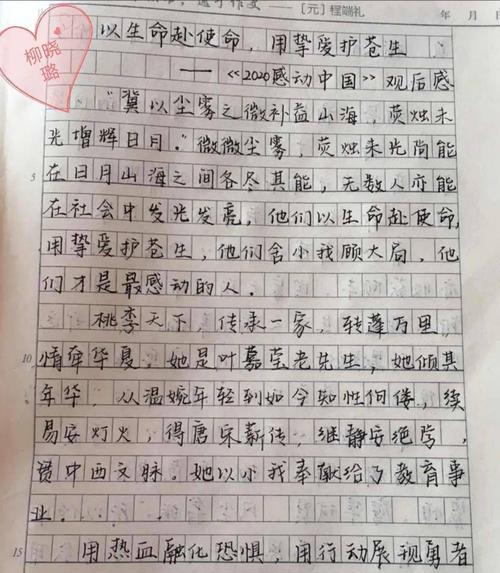 [元]程端礼
年 月
柳晓璐
以生命赴使命,用挚爱护苍生
——《2020感动中国》观后感
"冀以尘雾之微补益山海,荧烛末
光增辉日月."微微尘雾,荧烛末光尚能
5 在日月山海之间各尽其能,无数人亦能
在社会中发光发亮,他们以生命赴使命,
用挚爱护苍生,他们舍小我顾大局,他
们才是最感动的人.
桃李天下,传承一家,转蓬万里,
10 情牵华夏.她是叶嘉莹老先生,她倾其
年华.从温婉年轻到如今知性佝偻,续
易安灯火,得唐宋薪传,继静安绝学,
贯中西文脉.她以小我奉献给了教育事
业.
15 用热血融化恐惧,用行动展现勇者